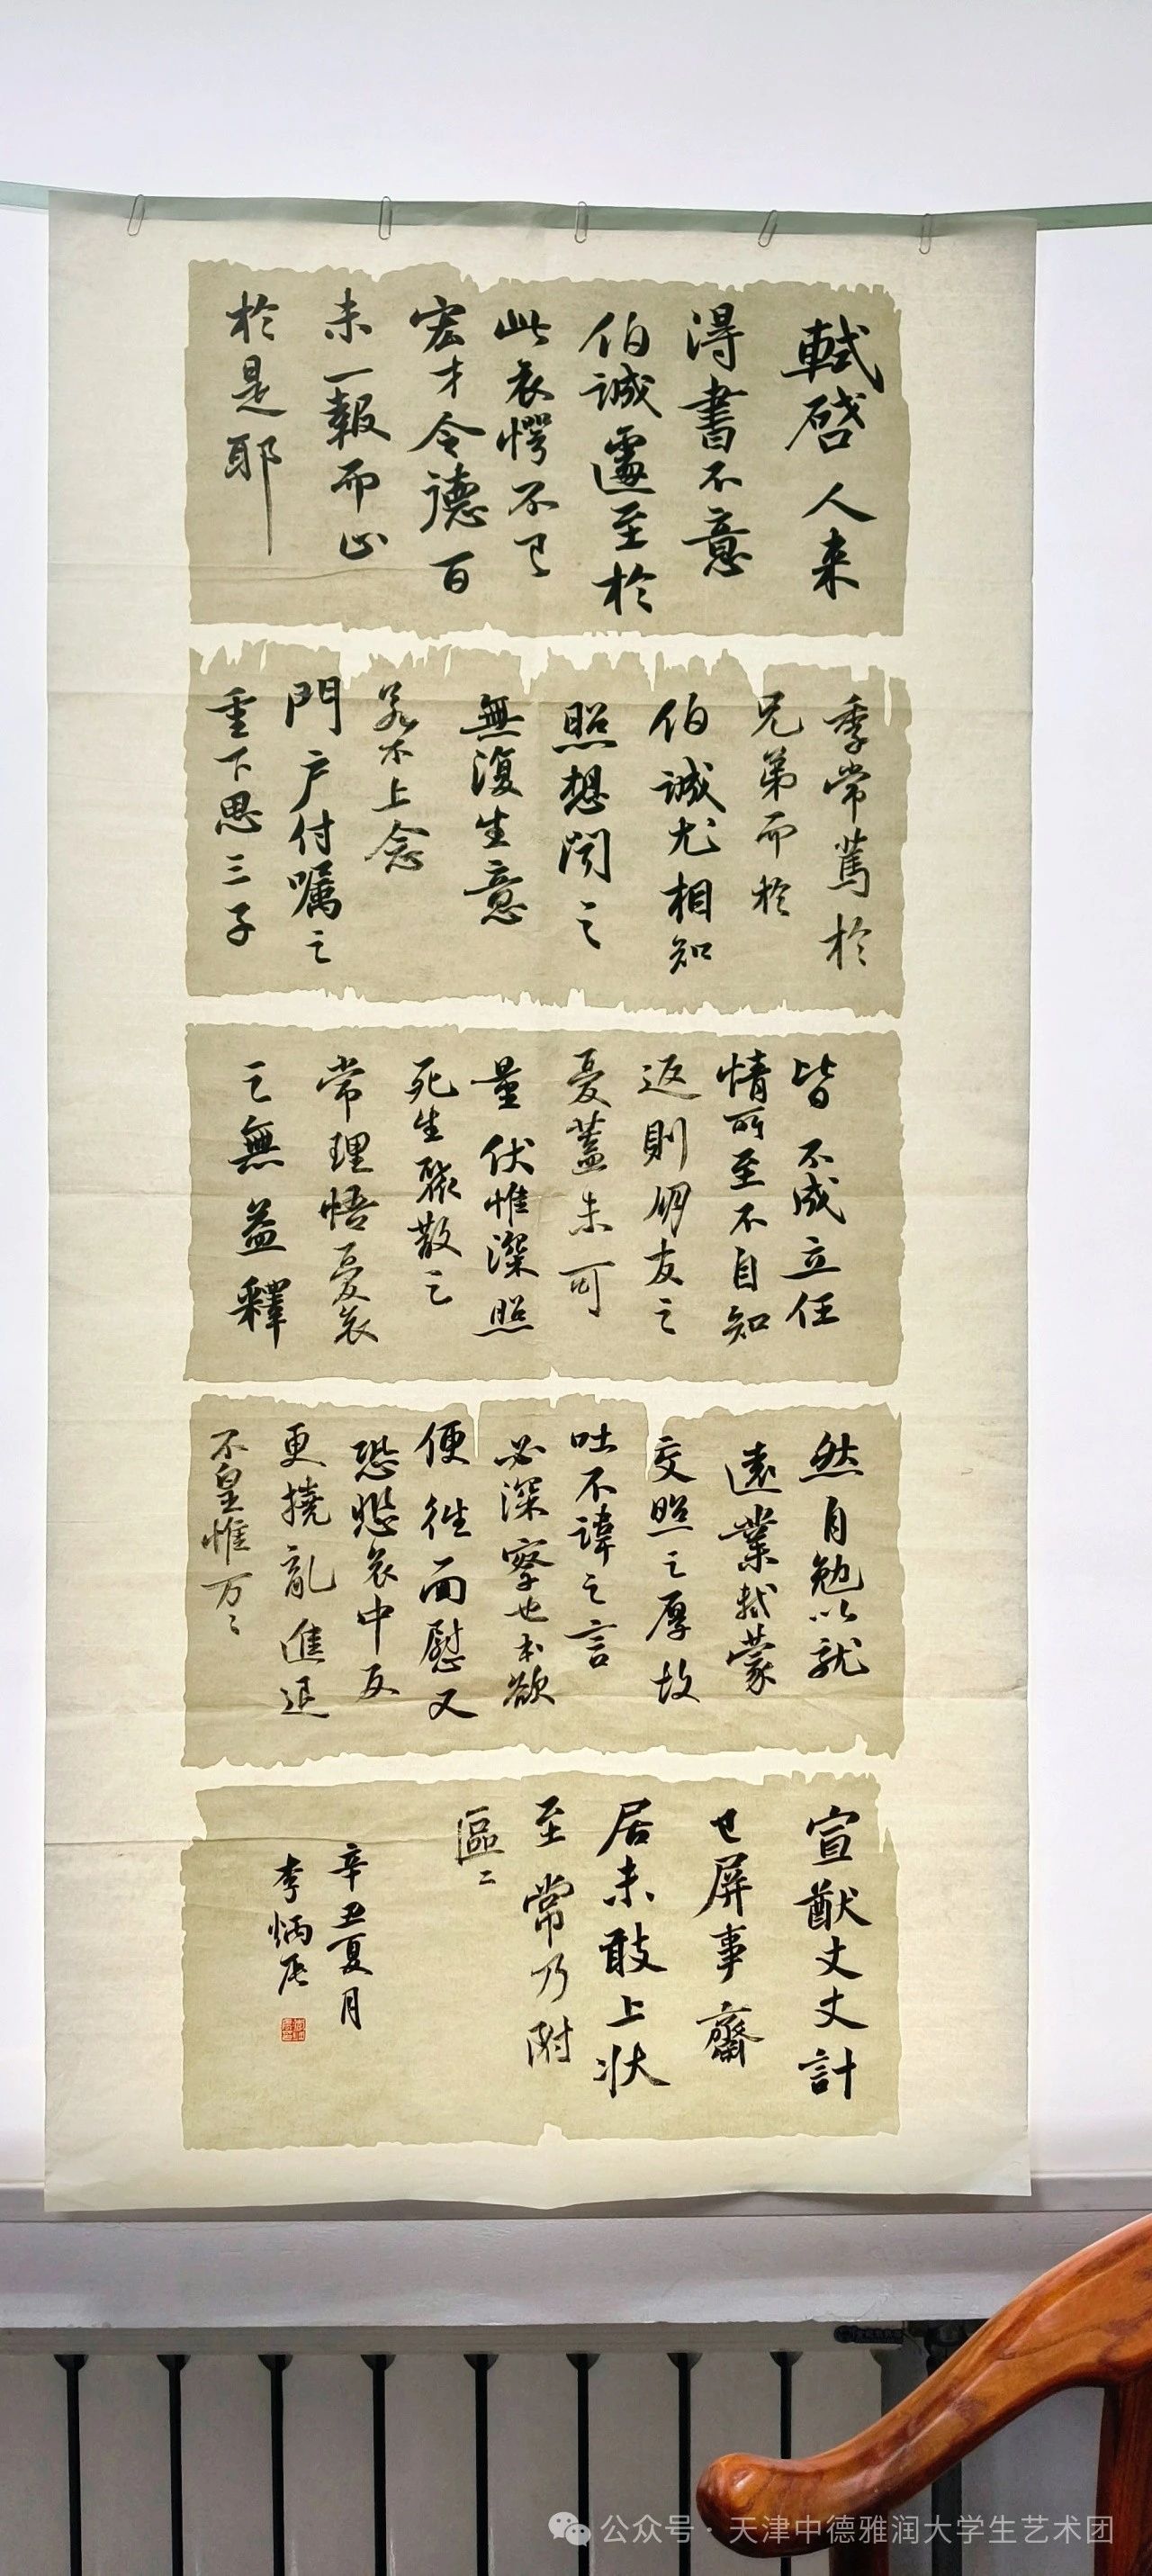 軾啓人来
得書不意
伯誠遽至於
此哀愕不已
宏才令德百
未一報而止
於是耶
季常篤於
兄弟而於
伯誠尤相知
照想聞之
無復生意
若不上念
門户付嘱之
重下思三子
皆不成立任
情所至不自知
返則朋友之
憂蓋未可
量伏惟深照
死生聚散之
常理悟憂哀
之無益釋
然自勉以就
遠業軾蒙
交照之厚故
吐不諱之言
必深察也本欲
便往面慰又
恐悲哀中反
更撓亂進退
不皇惟万〻
宣猷丈丈計
已屏事齋
居未敢上状
至常乃附
區二
辛丑夏月
李炳辰
公众号·天津中德雅润大学生艺术团